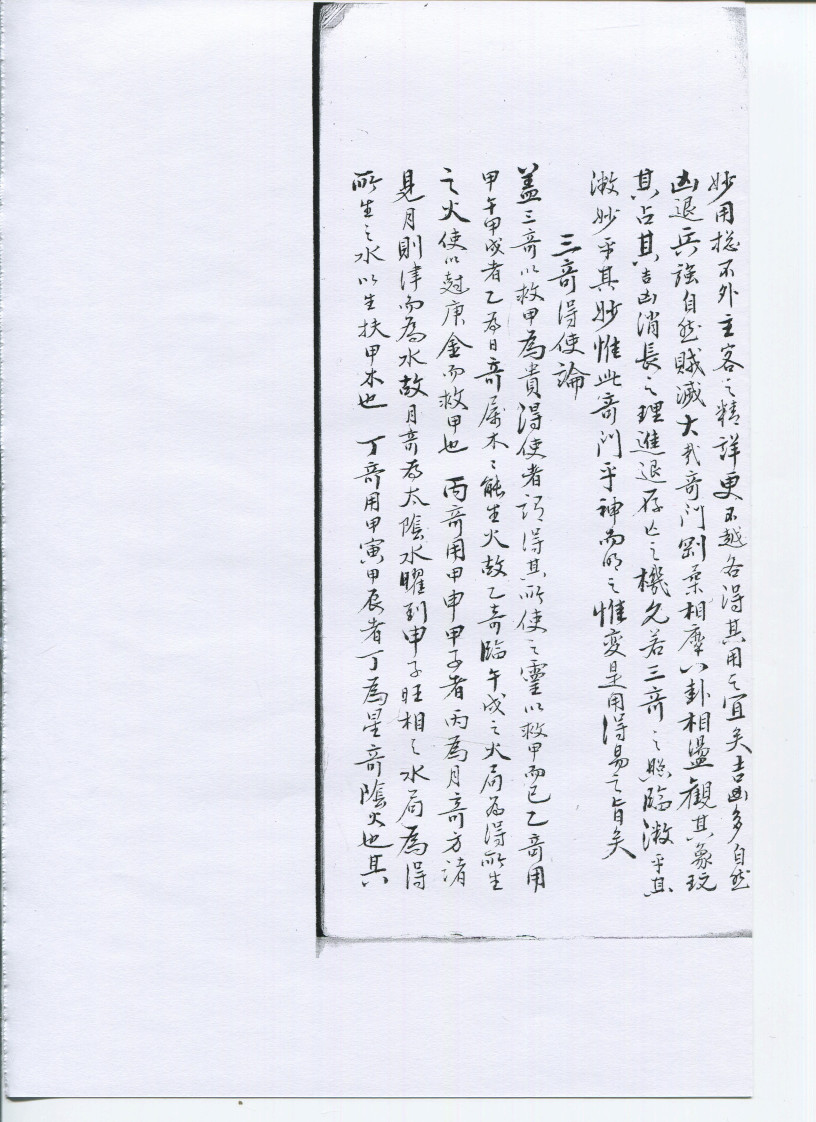 妙用摠不外主客之精詳更不越各得其用之宜矣吉凶多自然
凶退兵強自然賊滅大哉奇門剛柔相摩八卦相盪觀其象玩
其占其吉凶消長之理進退存亡之機允若三奇之照臨微乎其
微妙乎其妙惟此奇門乎神而明之惟变是用得易之旨矣
三奇得使論
盖三奇以救甲為貴得使者謂得其所使之靈以救甲而已乙奇用
甲午甲戌者乙為日奇属木〻能生火故乙奇臨午戌之火局為得所生
之火使以尅庚金而救甲也 丙奇用甲申甲子者丙為月奇方诸
見月則津而為水故月奇為太陰水曜到申子旺相之水局為得
所生之水以生扶甲木也 丁奇用甲寅甲辰者丁為星奇陰火也其